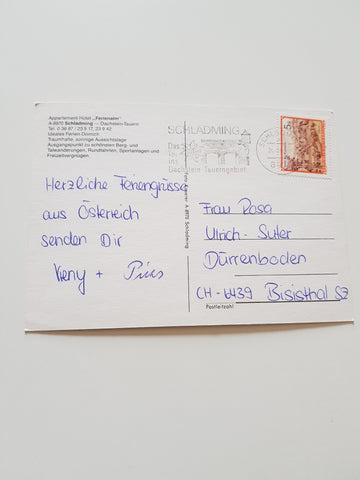 Appartement Hotel „Ferienalm"
A-8970 Schladming — Dachstein-Tauern
Tel. 0 36 87 / 23 5 17, 23 9 42
Ideales Ferien-Domizil
Traumhafte, sonnige Aussichtslage
Ausgangspunkt zu schönsten Berg- und
Talwanderungen, Rundfahrten, Sportanlagen und
Freizeitvergnügen
SCHLADMING
Das
im
Dachstein-Tauerngebiet
5
Herzliche Feriengrüsse
aus Österreich
senden Dir
Vreny + Pius
A 8970 Schladming
Frau Rosa
Ulrich-Suter
Dürrenboden
CH-6439 Bisisthal SZ
Postleitzahl